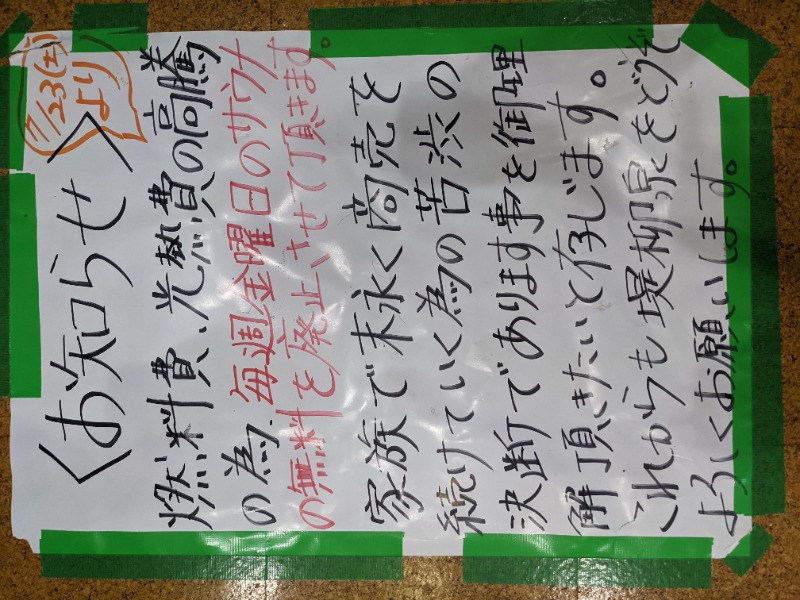 〈お知らせ〉
7/23(土)
より
燃料費、光熱費の高騰
の為、毎週金曜日のサウナ
の無料を廃止させて頂きます。
家族で末永く商売を
続けていく為の苦渋の
決断であります事を御理
解頂きたいと存じます。
これからも堤柳泉をどうぞ
よろしくお願いします。